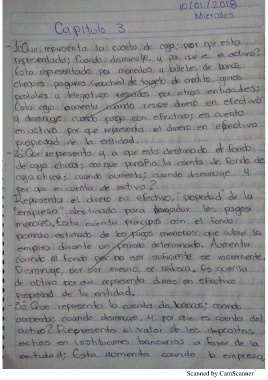 10/01/2018
Miercoles
Capitulo 3
-1¿Que representa la cuenta de caja; por que esta
representada; Cuando disminuye, y por que es de activo?
Esta representado por monedas y billetes de banco,
cheques, pagares (voucher) de tarjeta de credito, giros
postales y telegrafico recibidos por otras entidades;
Esta caja aumenta cuando recibe dinero en efectivo
y disminuye cuando paga con efectivo; es cuenta
de activo por que representa el dinero en efectivo
propiedad de la entidad.
-2¿Que representa y a que esta destinado el fondo
de caja
cuando aumenta; cuando disminuye y
por que es cuenta de activo?
Representa el dinero en efectivo "propiedad de la
empresa" destinado para los pagos
menores. Esta cuenta principia con el fondo
estimado de los pagos menores que cubre la
durante un periodo determinado. Aumenta
cuando el fondo por no ser suficiente se incremente.
Disminuye, por ser se reduce. Es cuenta
de activo por que representa dinero en efectivo
propiedad de la entidad.
-3¿Que representa la cuenta de bancos; cuando
aumenta; cuando disminuye y por que es cuenta del
activo? Representa el valor de los depositos
echos en instituciones bancarias a favor de la
entidad; Esta aumenta cuando la empresa
Scanned by CamScanner